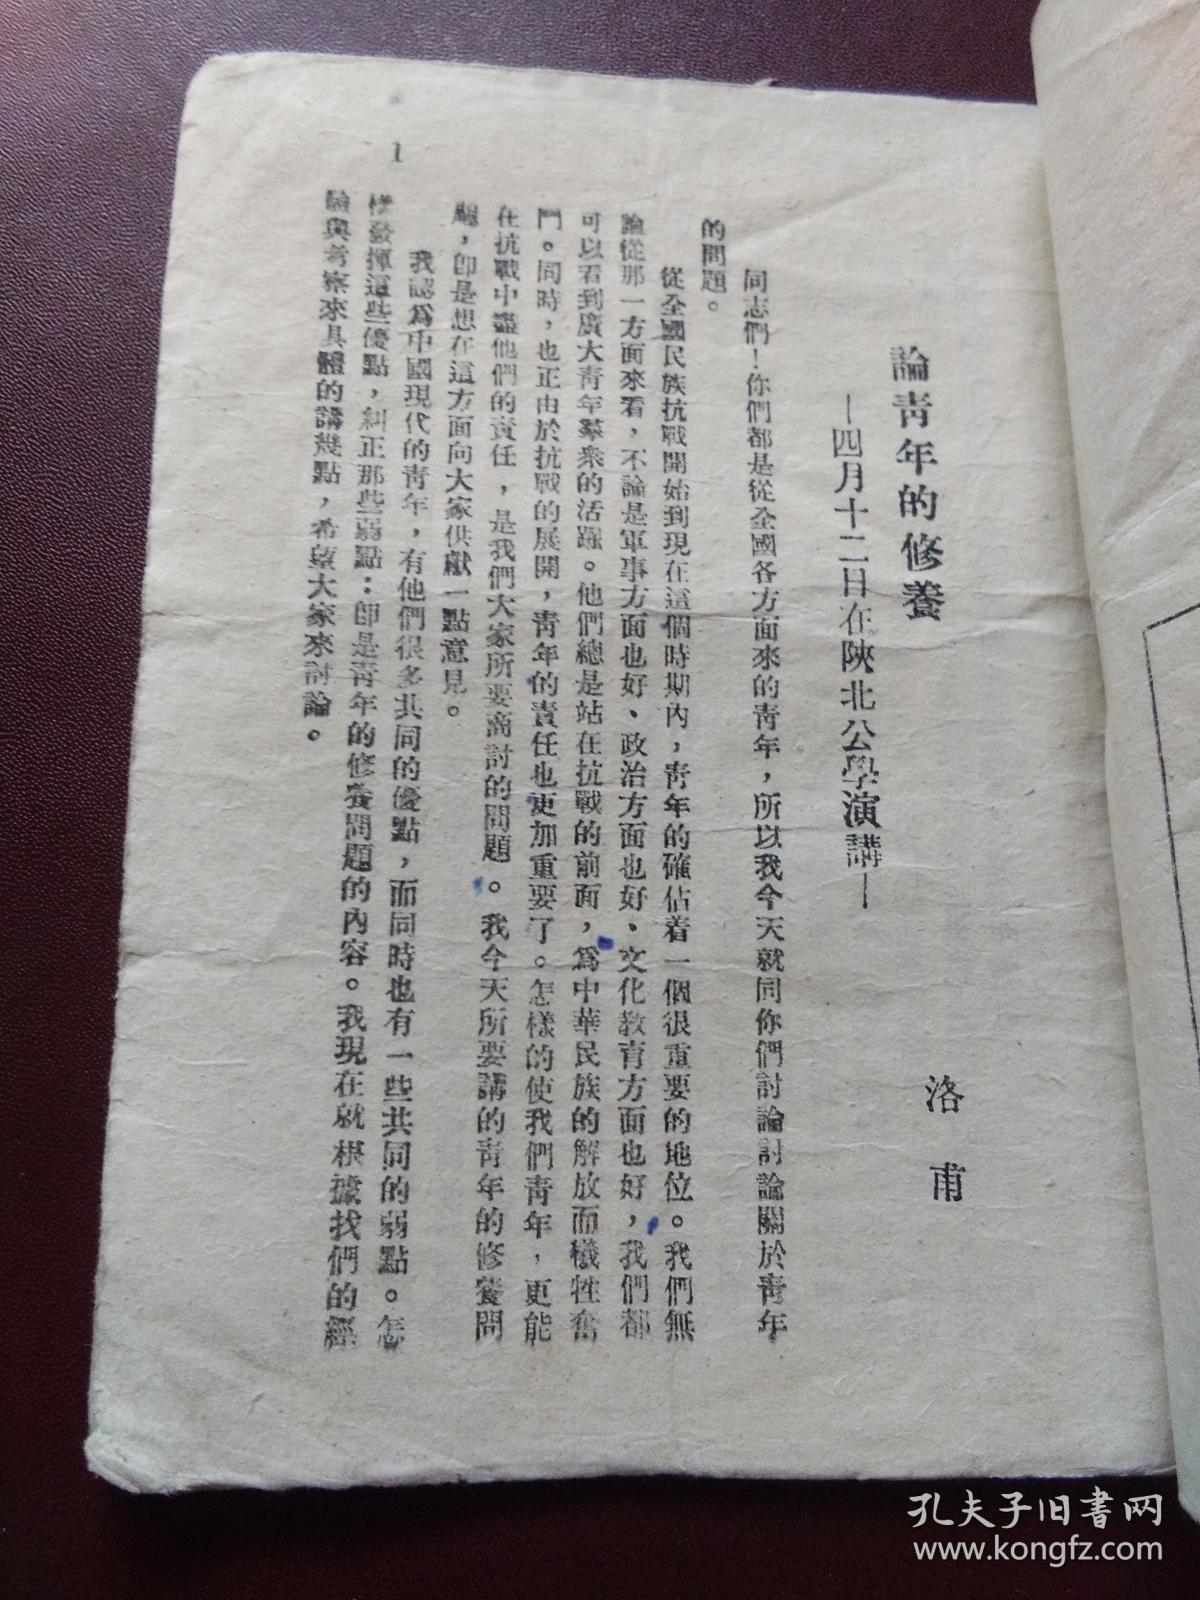 論青年的修養
—四月十二日在陝北公學演講—
洛甫
同志們！你們都是從全國各方面來的青年，所以我今天就同你們討論討論關於青年
的問題。
從全國民族抗戰開始到現在這個時期內，青年的確佔着一個很重要的地位。我們無
論從那一方面來看，不論是軍事方面也好、政治方面也好、文化教育方面也好，我們都
可以看到廣大青年羣衆的活躍。他們總是站在抗戰的前面，爲中華民族的解放而犧牲奮
鬥。同時，也正由於抗戰的展開，青年的責任也更加重要了。怎樣的使我們青年，更能
在抗戰中盡他們的責任，是我們大家所要商討的問題。我今天所要講的青年的修養問
題，卽是想在這方面向大家供獻一點意見。
我認爲中國現代的青年，有他們很多共同的優點，而同時也有一些共同的弱點。怎
樣發揮這些優點，糾正那些弱點：卽是青年的修養問題的內容。我現在就根據找們的經
驗與考察來具體的講幾點，希望大家來討論。
1
孔夫子旧书网
www.kongfz.com